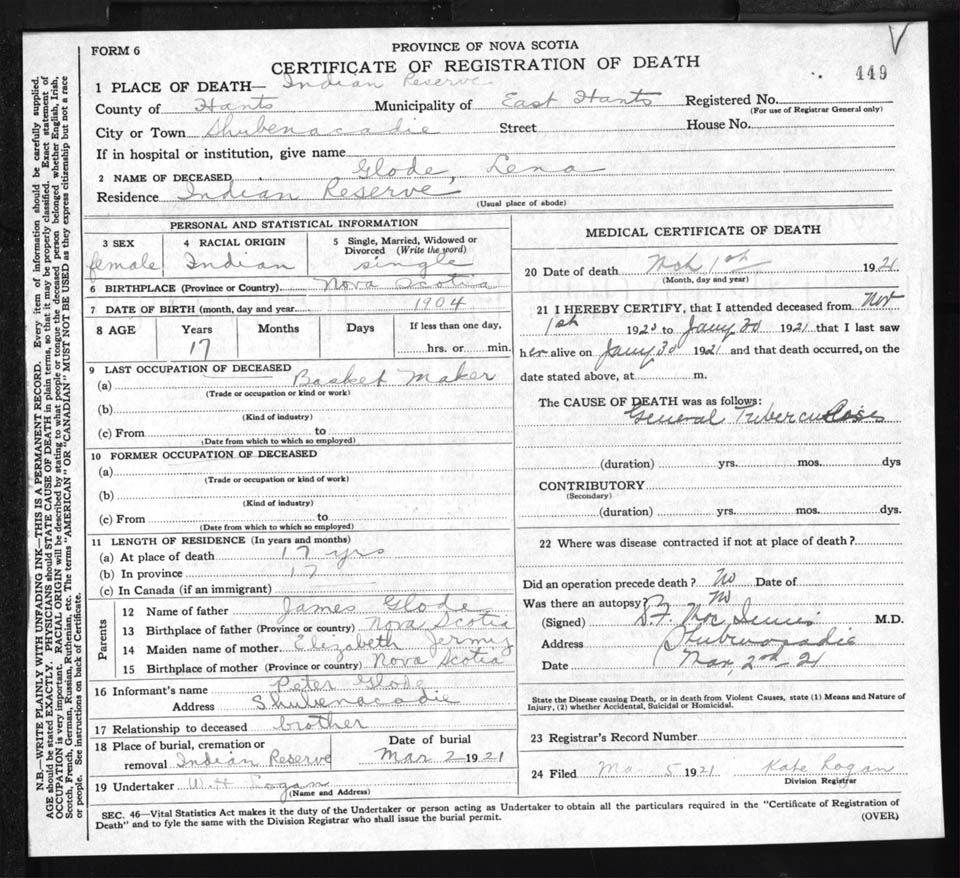 FORM 6
PROVINCE OF NOVA SCOTIA
CERTIFICATE OF REGISTRATION OF DEATH
449
1 PLACE OF DEATH— Indian Reserve
County of Hants Municipality of East Hants Registered No.
(For use of Registrar General only)
City or Town Shubenacadie Street House No.
If in hospital or institution, give name
2 NAME OF DECEASED Glode, Lena
Residence Indian Reserve
(Usual place of abode)
PERSONAL AND STATISTICAL INFORMATION
3 SEX 4 RACIAL ORIGIN 5 Single, Married, Widowed or Divorced (Write the word)
female Indian single
6 BIRTHPLACE (Province or Country) Nova Scotia
7 DATE OF BIRTH (month, day and year 1904
8 AGE Years Months Days If less than one day,
17 hrs. or min.
9 LAST OCCUPATION OF DECEASED
(a) Basket Maker
(Trade or occupation or kind or work)
(b)
(Kind of industry)
(c) From to
(Date from which to which so employed)
10 FORMER OCCUPATION OF DECEASED
(a)
(Trade or occupation or kind of work)
(b)
(Kind of industry)
(c) From to
(Date from which to which so employed)
11 LENGTH OF RESIDENCE (In years and months)
(a) At place of death 17 yrs
(b) In province 17
(c) In Canada (if an immigrant)
Parents
12 Name of father James Glode
13 Birthplace of father (Province or country) Nova Scotia
14 Maiden name of mother Elizabeth Jermy
15 Birthplace of mother (Province or country) Nova Scotia
16 Informant's name Peter Glode
Address Shubenacadie
17 Relationship to deceased brother
18 Place of burial, cremation or removal Indian Reserve Date of burial Mar 2 1921
19 Undertaker W H Logan
(Name and Address)
MEDICAL CERTIFICATE OF DEATH
20 Date of death Mch 1st 1921
(Month, day and year)
21 I HEREBY CERTIFY, that I attended deceased from Nov
1st 192 to Jany 30 1921 that I last saw
her alive on Jany 30 1921 and that death occurred, on the
date stated above, at m.
The CAUSE OF DEATH was as follows:
General Tuberculosis
(duration) yrs. mos. dys
CONTRIBUTORY
(Secondary)
(duration) yrs. mos. dys.
22 Where was disease contracted if not at place of death?
Did an operation precede death? No Date of
Was there an autopsy? No
(Signed) M.D.
Address Shubenacadie
Date Mar, 2nd 21
State the Disease causing Death, or in death from Violent Causes, state (1) Means and Nature of
Injury, (2) whether Accidental, Suicidal or Homicidal.
23 Registrar's Record Number
24 Filed Mar 5 1921 Kate Logan
Division Registrar
SEC. 46—Vital Statistics Act makes it the duty of the Undertaker or person acting as Undertaker to obtain all the particulars required in the "Certificate of Registration of
Death" and to fyle the same with the Division Registrar who shall issue the burial permit.
(OVER)
N.B.—WRITE PLAINLY WITH UNFADING INK—THIS IS A PERMANENT RECORD. Every item of information should be carefully supplied.
AGE should be stated EXACTLY. PHYSICIANS should STATE CAUSE OF DEATH in plain terms, so that it may be properly classified. Exact statement of
OCCUPATION is very important. RACIAL ORIGIN will be described by stating to what people or tongue the deceased person belonged whether English, Irish,
Scotch, French, German, Russian, Ruthenian, etc. The terms "AMERICAN" OR "CANADIAN" MUST NOT BE USED as they express citizenship but not a race
or people. See instructions on back of Certificate.